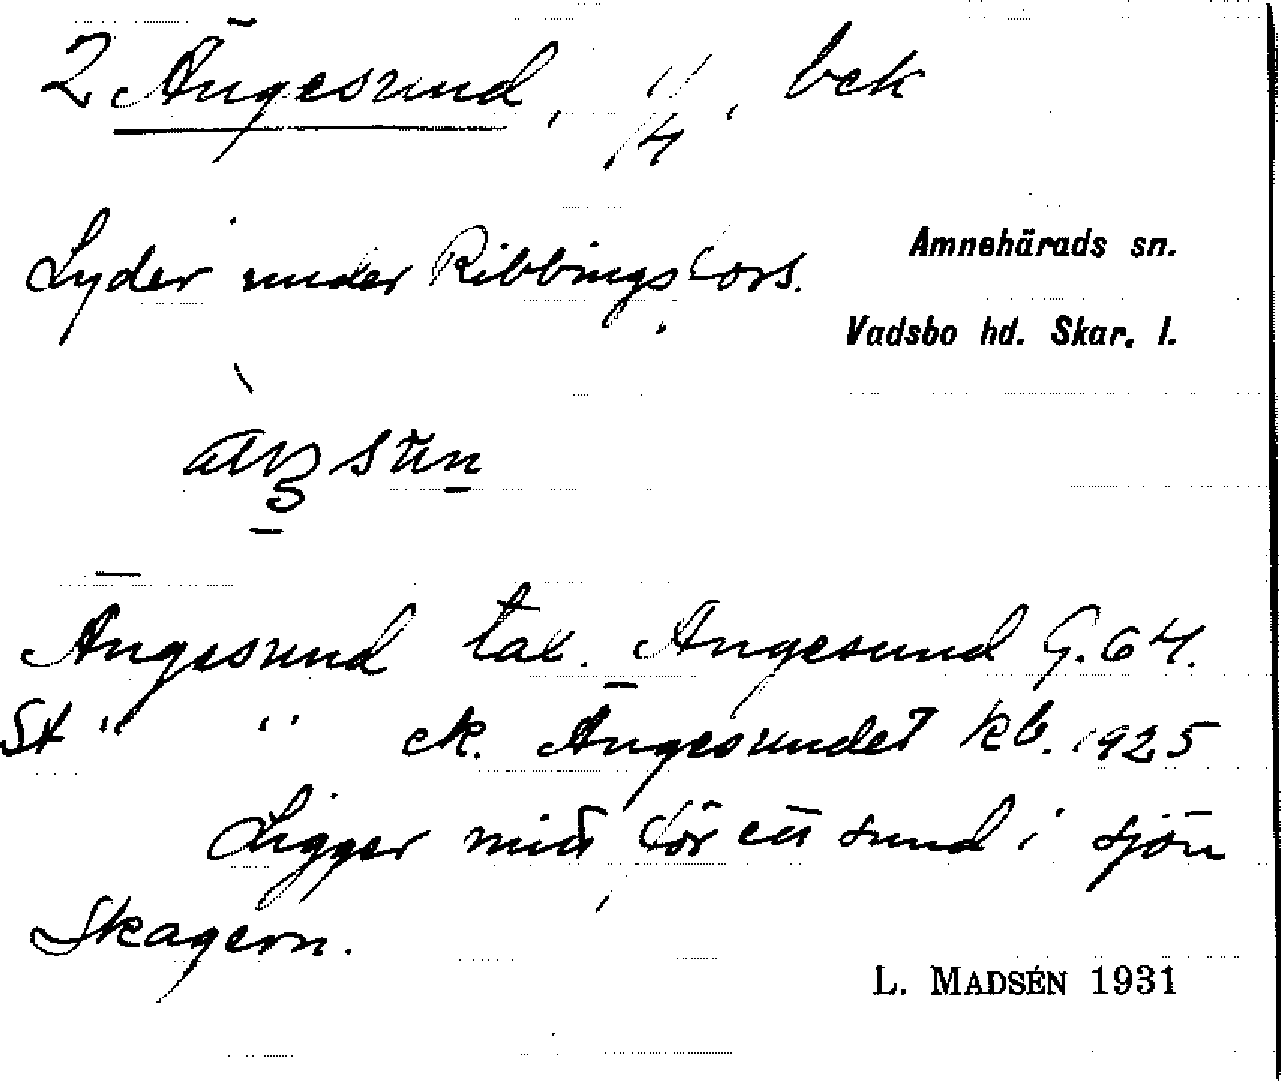 2 Ängesund, 1/4, bek
Lyder under Ribbingsfors.
Amnehärads sn.
Vadsbo hd. Skar. l.
Ängesund tax. Ängesund G. 64.
St " " ek. Ängesundet kb. 1925
Ligger mitt för ett sund i sjön
Skagern.
L. MADSÉN 1931